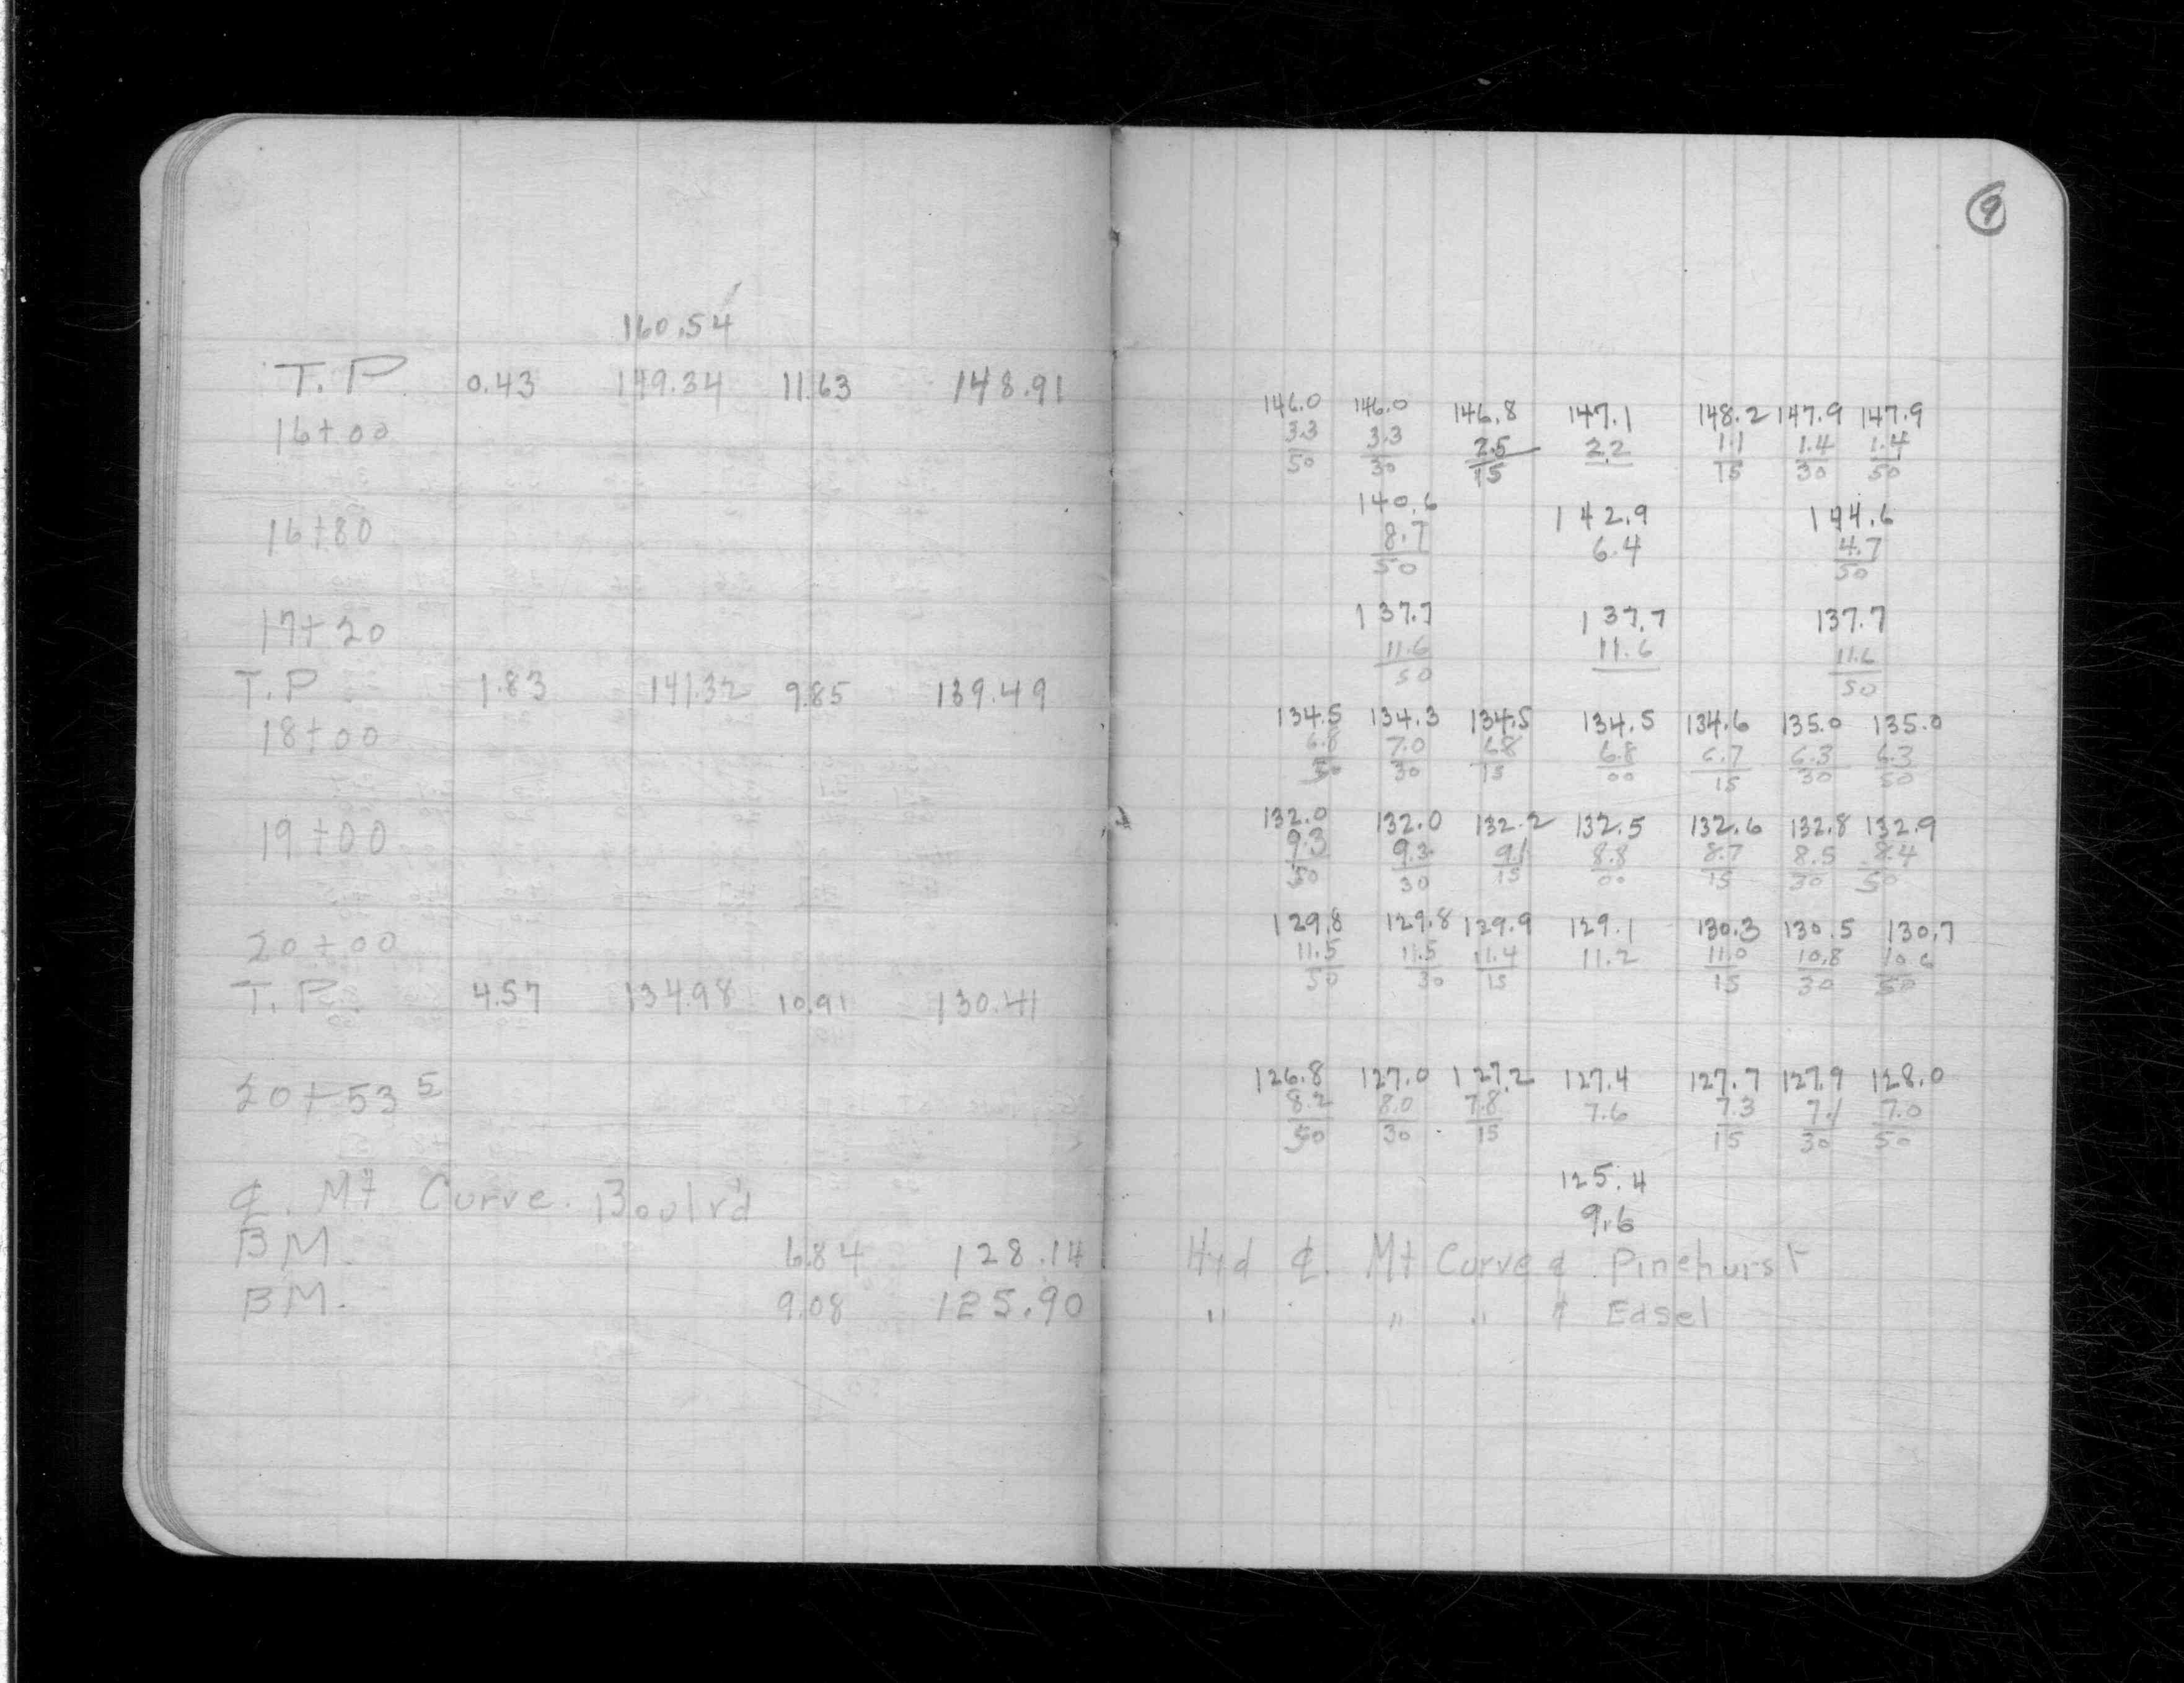 160.54
T.P. 0.43 149.34 11.63 148.91
16+00
16+80
17+20
T.P 1.83 141.32 9.85 139.49
18+00
19+00
20+00
T.P. 4.57 134.98 10.91 130.41
20+53 5
℄. Mt Curve. Boulv'd
BM. 6.84 128.14
BM. 9.08 125.90
9
146.0 146.0 146.8 147.1 148.2 147.9 147.9
3.3 3.3 2.5 2.2 1.1 1.4 1.4
50 30 15 15 30 50
140.6 142.9 144.6
8.7 6.4 4.7
50 50
137.7 137.7 137.7
11.6 11.6 11.6
50 50
134.5 134.3 134.5 134.5 134.6 135.0 135.0
6.8 7.0 6.8 6.8 6.7 6.3 6.3
50 30 15 00 15 30 50
132.0 132.0 132.2 132.5 132.6 132.8 132.9
9.3 9.3 9.1 8.8 8.7 8.5 8.4
50 30 15 00 15 30 50
129.8 129.8 129.9 129.1 130.3 130.5 130.7
11.5 11.5 11.4 11.2 11.0 10.8 10.6
50 30 15 15 30 50
126.8 127.0 127.2 127.4 127.7 127.9 128.0
8.2 8.0 7.8 7.6 7.3 7.1 7.0
50 30 15 15 30 50
125.4
9.6
Hyd ℄. Mt Curve & Pinehurst
" " " & Edsel